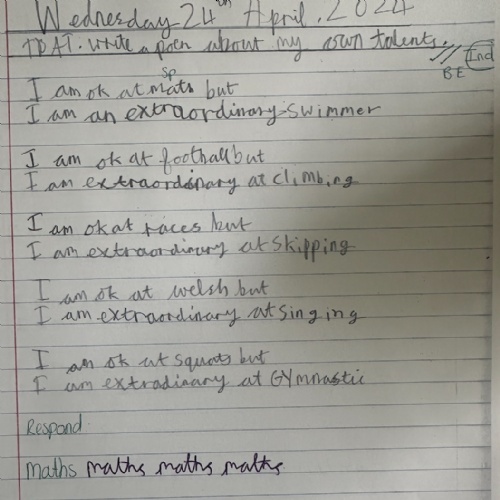 Wednesday 24th April, 2024
TBAT: write a poem about my own talents.
Ind
BE
sp
I am ok at mats but
I am an extraordinary swimmer
I am ok at football but
I am extraordinary at climbing
I am ok at races but
I am extraordinary at skipping
I am ok at welsh but
I am extraordinary at singing
I am ok at squats but
I am extradinary at GYmnastic
Respond
maths maths maths maths